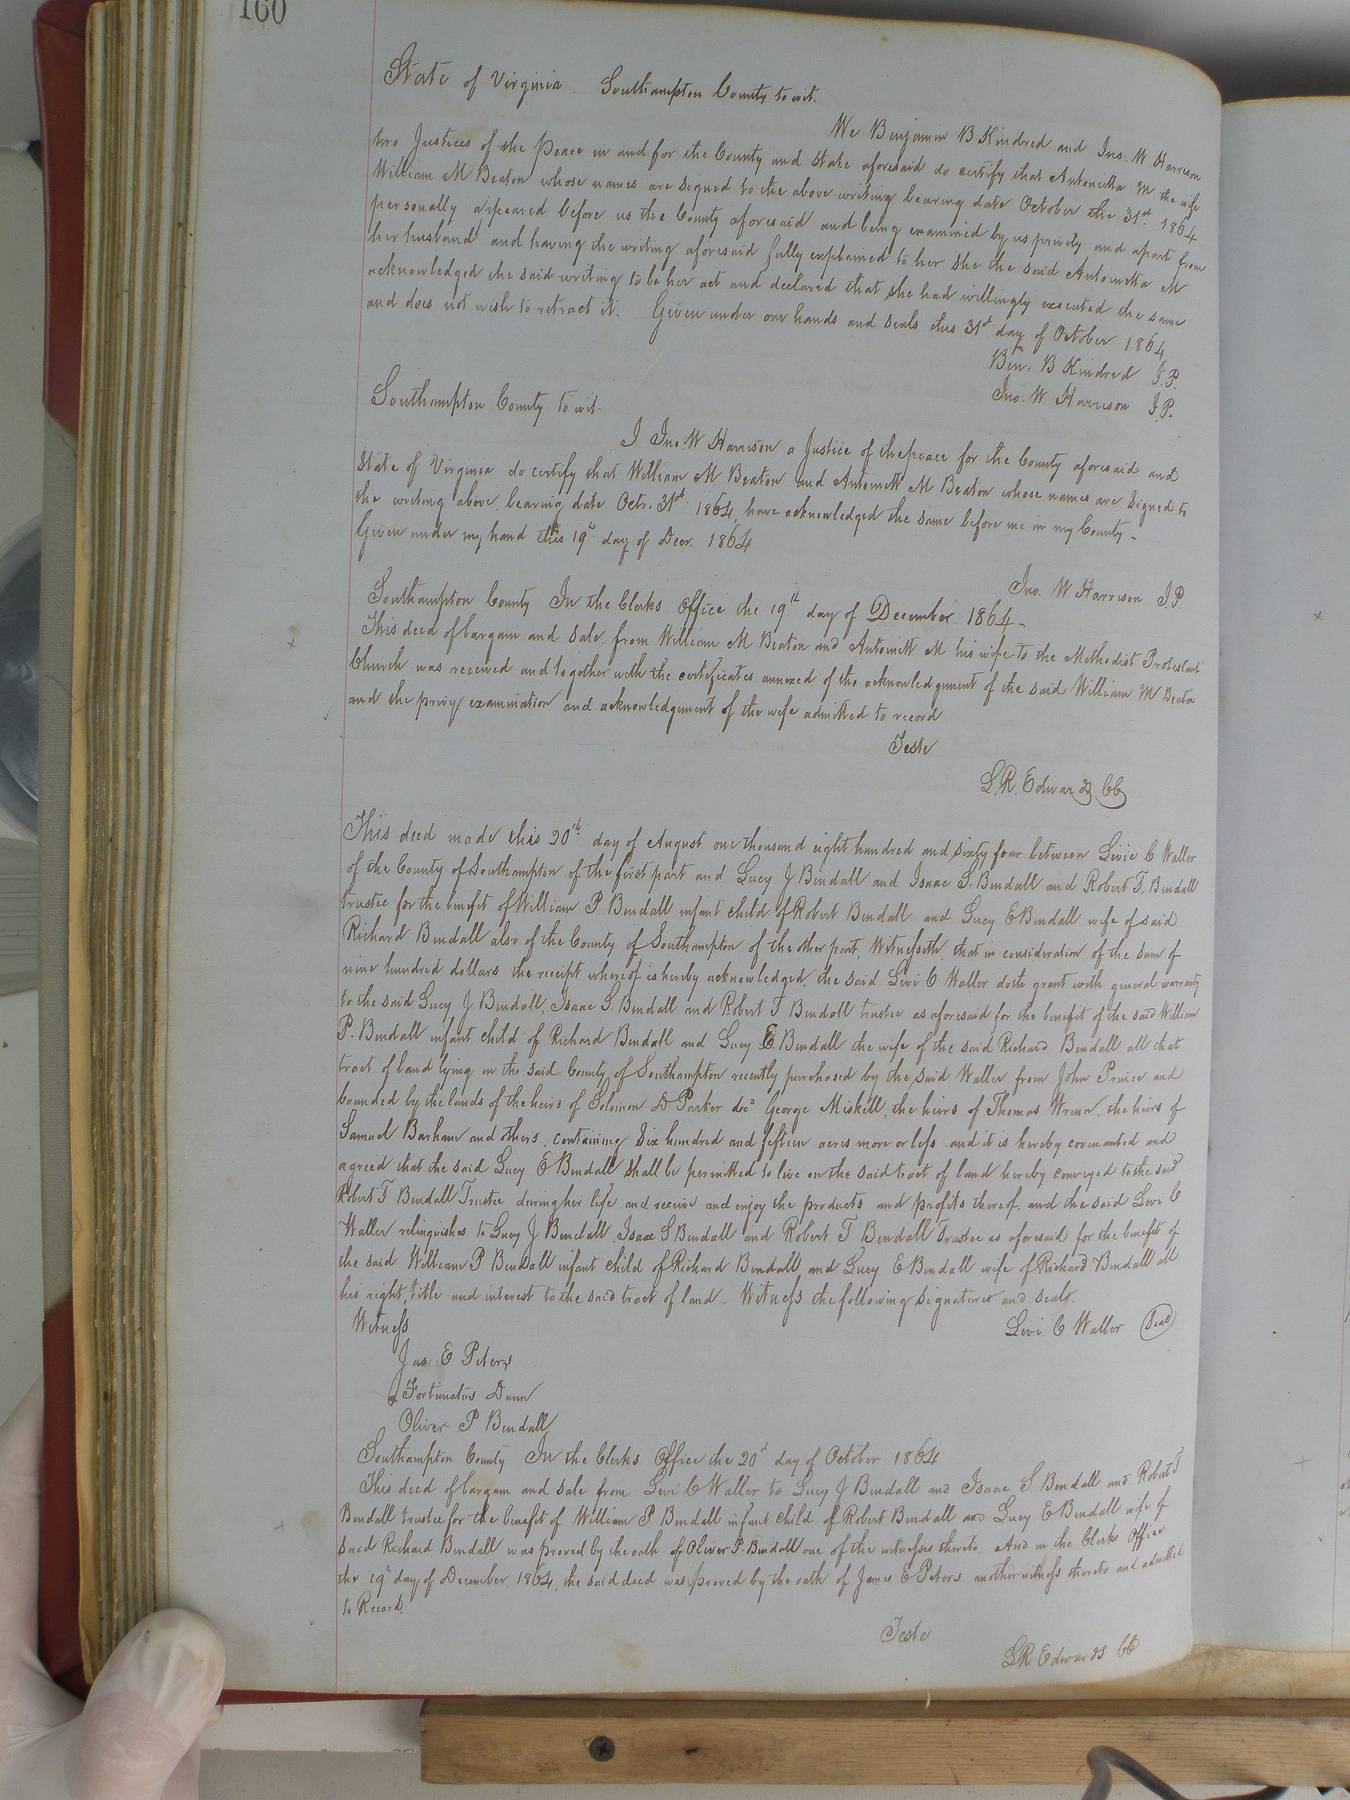 160
State of Virginia. Southampton County to wit.
We Benjamin B Kindred and Jno. W Harrison
two Justices of the Peace in and for the County and State aforesaid do certify that Antonetta M the wife
William M Beaton whose names are signed to the above writing bearing date October the 31st 1864
personally appeared before us the County aforesaid and being examined by us privily and apart from
her husband and having the writing aforesaid fully explained to her she the said Antonetta M
acknowledged the said writing to be her act and declared that she had willingly executed the same
and does not wish to retract it. Given under our hands and seals this 31st day of October 1864
Ben. B Kindred J.P.
Jno. W Harrison J.P.
Southampton County to wit.
I Jno. W Harrison a Justice of the peace for the County aforesaid and
State of Virginia do certify that William M Beaton and Antonett M Beaton whose names are signed to
the writing above bearing date Octr. 31st 1864, have acknowledged the same before me in my County -
Given under my hand this 19th day of Decr. 1864
Jno. W Harrison J.P.
Southampton County In the Clerks Office the 19th day of December 1864 -
This deed of bargain and sale from William M Beaton and Antonett M his wife to the Methodist Protestant
Church was received and together with the certificates annexed of the acknowledgement of the said William M Beaton
and the privy examination and acknowledgement of the wife admitted to record
Teste
L.R. Edwards CC
This deed made this 20th day of August one thousand eight hundred and sixty four between Levie C Waller
of the County of Southampton of the first part and Lucy J Bendall and Isaac S. Bendall and Robert T. Bendall
trustee for the benefit of William P Bendall infant child of Robert Bendall and Lucy E Bendall wife of said
Richard Bendall also of the County of Southampton of the other part, Witnesseth that in consideration of the sum of
nine hundred dollars the receipt whereof is hereby acknowledged, the said Levi C Waller doth grant with general warranty
to the said Lucy J Bendall, Isaac S. Bendall and Robert T Bendall trustee as aforesaid for the benefit of the said William
P. Bendall infant child of Richard Bendall and Lucy E. Bendall the wife of the said Richard Bendall all that
tract of land lying in the said County of Southampton recently purchased by the said Waller from John Prince and
bounded by the lands of the heirs of Solomon D Parker decd George Miskill, the heirs of Thomas Wrenn, the heirs of
Samuel Barham and others, containing six hundred and fifteen acres more or less and it is hereby covenanted and
agreed that the said Lucy E Bendall shall be permitted to live on the said tract of land hereby conveyed to the said
Robert T Bendall Trustee during her life and receive and enjoy the products and profits thereof, and the said Levi C
Waller relinquishes to Lucy J Bendall, Isaac S Bendall and Robert T Bendall Trustee as aforesaid for the benefit of
the said William P Bendall infant child of Richard Bendall and Lucy E Bendall wife of Richard Bendall all
his right, title and interest to the said tract of land - Witness the following signatures and seals.
Witness Levi C Waller Seal
Jas. E Peters
Fortunatus Dunn
Oliver P Bendall
Southampton County In the Clerks Office the 20th day of October 1864
This deed of bargain and sale from Levi C Waller to Lucy J Bendall and Isaac S Bendall and Robert T
Bendall trustee for the benefit of William P Bendall infant child of Robert Bendall and Lucy E Bendall wife of
said Richard Bendall was proved by the oath of Oliver P. Bendall one of the witnesses thereto And in the Clerks Office
the 19th day of December 1864, the said deed was proved by the oath of James E Peters another witness thereto and admitted
to Record.
Teste
L.R. Edwards CC